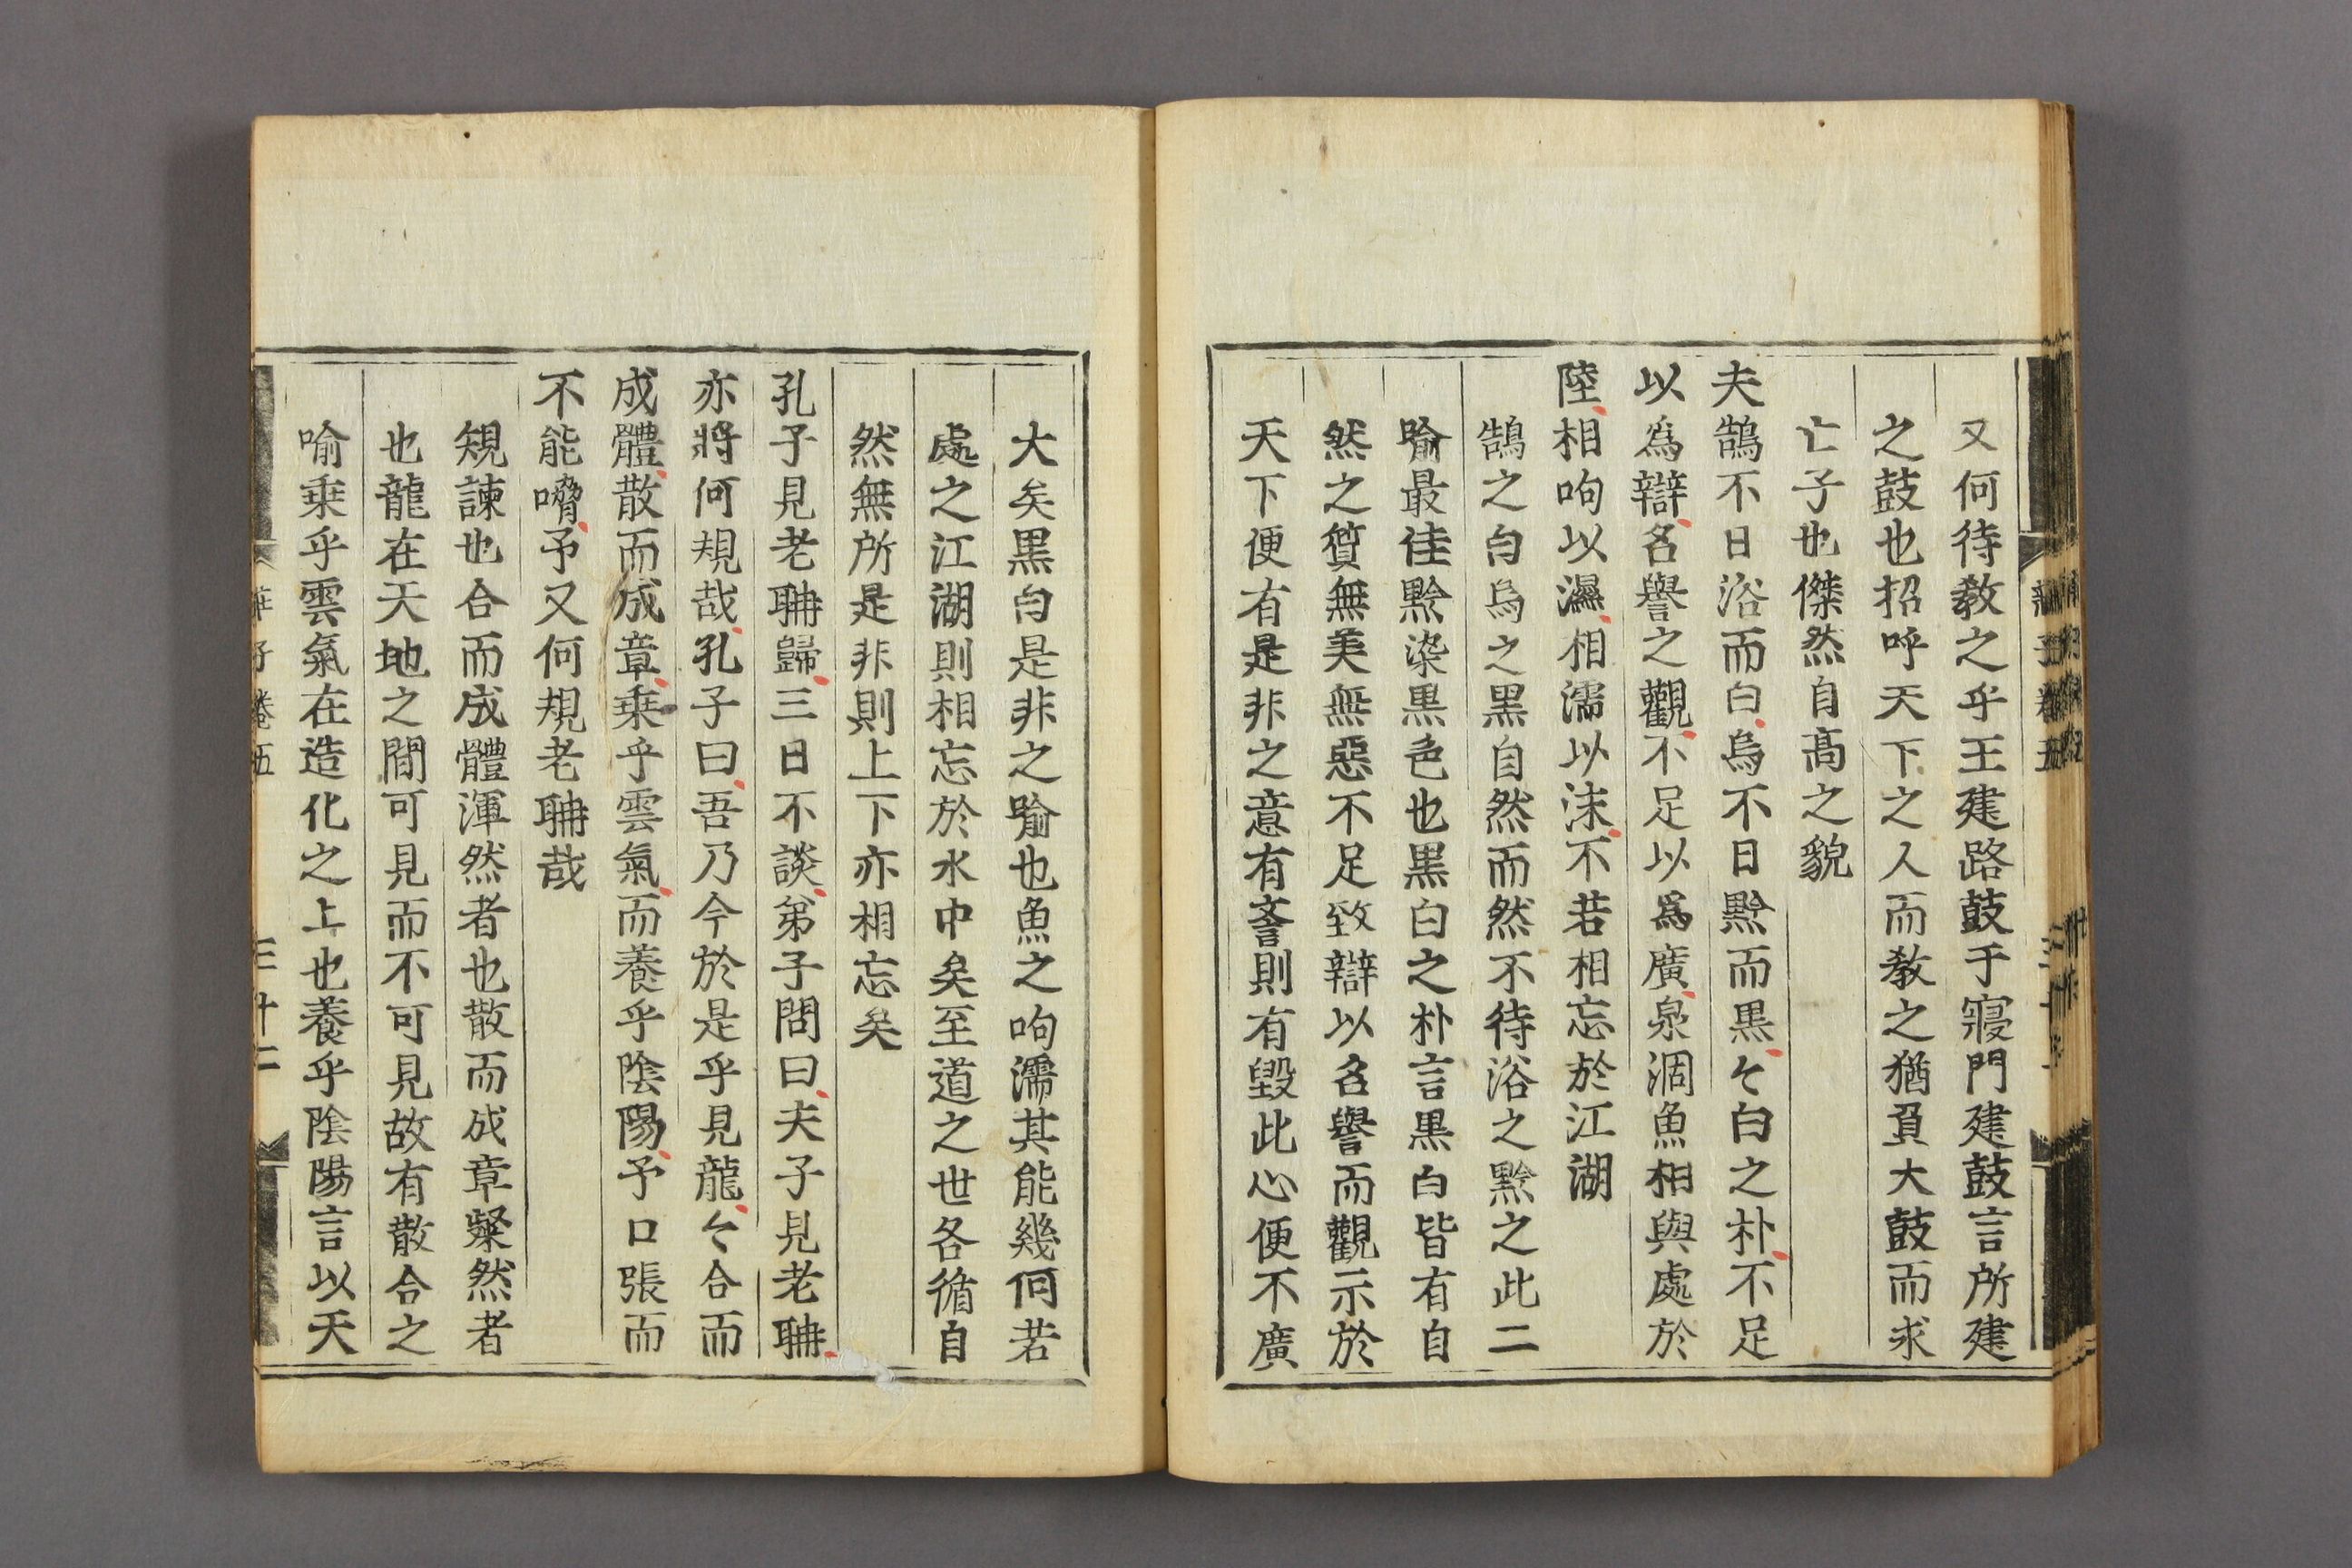 又何待教之乎王建路鼓于寢門建鼓言所建
之鼓也招呼天下之人而教之猶負大鼓而求
亡子也傑然自髙之貌
夫鵠不日浴而白烏不日黔而黒〻白之朴不足
以爲辯名譽之觀不足以爲廣泉涸魚相與處於
陸相呴以濕相濡以沫不若相忘於江湖
鵠之白烏之黒自然而然不待浴之黔之此二
喻最佳黔染黒色也黒白之朴言黒白皆有自
然之質無美無惡不足致辯以名譽而觀示於
天下便有是非之意有吝則有毀此心便不廣
大矣黒白是非之喻也魚之呴濡其能幾何若
處之江湖則相忘於水中矣至道之世各循自
然無所是非則上下亦相忘矣
孔子見老聃歸三日不談弟子問曰夫子見老聃
亦將何規哉孔子曰吾乃今於是乎見龍〻合而
成體散而成章乗乎雲氣而養乎陰陽予口張而
不能嗋予又何規老聃哉
規諫也合而成體渾然者也散而成章粲然者
也龍在天地之間可見而不可見故有散合之
喻乗乎雲氣在造化之上也養乎陰陽言以天
莊子卷五
三十二